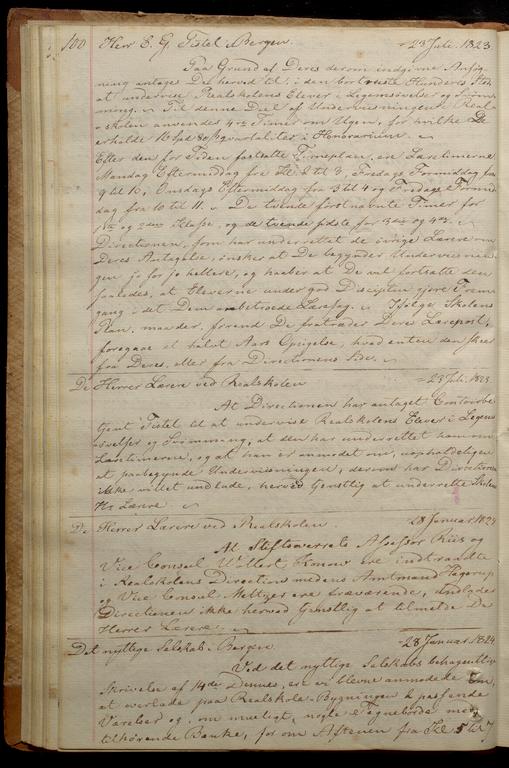 100 Herr E. G. Tistel Bergen. 23 Juli. 1823
Paa Grund af Deres derom indgivne Ansøg-
ning antages De herved til, i den bortreiste Sted
at undervise Realskolens Elever i Legemsøvelser og Svøm-
ning. Til denne Deel af Underviisningen i Real-
skolen anvendes 4re Timer om Ugen, for hvilke De
erholde 16 Spd 80 ß qvartaliter i Honorarium.
Efter den for Tiden fastsatte Timeplan, er Læretimerne
Mandag Eftermiddag fra Kl 2 til 3, Fredags Formiddag fra
9 til 10, Onsdags Eftermiddag fra 3 til 4 og Fredags Formid
dag fra 10 til 11. De tvende førstnævnte Timer for
1ste og 2den Klasse, og de tvende sidste for 3die og 4de.
Directionen, som har underrettet de øvrige Lærere om
Deres Antagelse, ønsker at De begynder Underviisnin-
gen jo før jo hellere, og haaber at De vil fortsætte den
saaledes, at Eleverne under god Disciplin gjøre Frem
gang i det Dem anbetroede Lærefag. Ifølge Skolens
Plan, maa der, førend De fratræder Deres Lærepost,
foregaae et halvt Aars Opsigelse, hvad enten den skeer
fra Deres, eller fra Directionens Side.
De Herrer Lærere ved Realskolen 23 Juli. 1823
At Directionen har antaget Contoirbe
tjent Tistel til at undervise Realskolens Elever i Legems
øvelser og Svømning, at den har underrettet ham om
Læretimerne, og at han er anmodet om, uopholdeligen
at paabegynde Underviisningen, derom har Directionen
ikke villet undlade, herved tjenstligt at underrette Skolens
Hr Lærere.
De Herrer Lærere ved Realskolen. 28 Januar. 1824
At Stiftsoverrets Assessor Riis og
Vice Consul Wollert Konow ere indtraadte
i Realskolens Direction medens Amtmand Hagerup
og Vice Consul Meltzer ere fraværende, undlader
Directionen ikke herved tjenstligt at tilmelde De
Herrer Lærere.
Det nyttige Selskab. Bergen. 28 Januar. 1824
Ved det nyttige Selskabs behagelige
Skrivelse af 14de Dennes, ere vi blevne anmodede om,
at overlade paa Realskole-Bygningen passende
Værelsed og, om mueligt, nogle Tegneborde med
tilhørende Bænke, for om Aftenen fra Kl 5 til 7